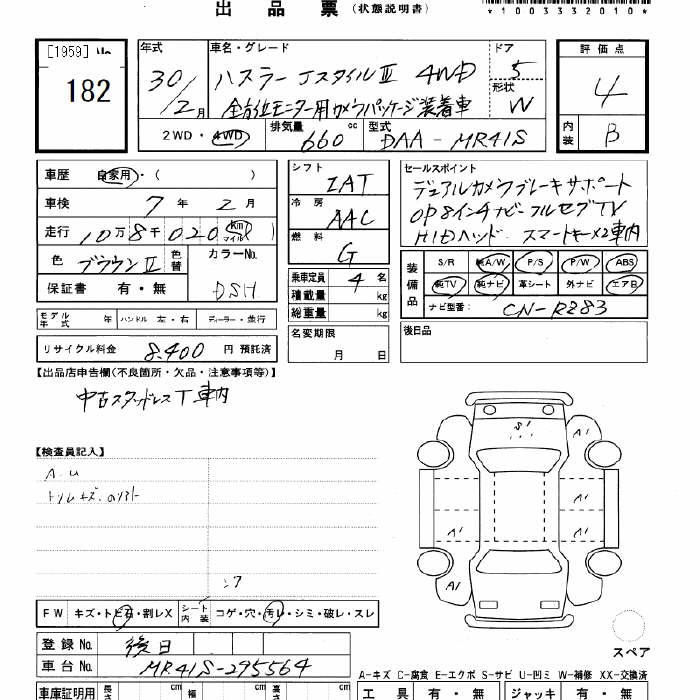 出 品 票 (状態説明書)
*1003332010*
[1959]
182
年式 30/2月
車名・グレード ハスラー Jスタイル Ⅲ 4WD
全方位モニター用カメラパッケージ装着車
ドア 5
形状 W
2WD・4WD 排気量 660 cc 型式 DAA-MR41S
評価点 4
内装 B
車歴 自家用・( )
車検 7年 2月
走行 10万8千020 Km マイル
色 ブラウンⅡ 色替 カラーNo. DSH
保証書 有・無
シフト IAT
冷房 AAC
燃料 G
セールスポイント
デュアルカメラブレーキサポート
OP 8インチナビ フルセグTV
HIDヘッド スマートキー×2車内
乗車定員 4 名
積載量 kg
総重量 kg
装備品 S/R 純A/W P/S P/W ABS
純TV 純ナビ 革シート 外ナビ エアB
ナビ型番: CN-RZ83
モデル年式 年 ハンドル 左・右 ディーラー・並行
名変期限 月 日
後日品
リサイクル料金 8,400 円 預託済
【出品店申告欄(不良箇所・欠品・注意事項等)】
中古スタッドレスT車内
【検査員記入】
A.U
S1
A1
A1
A1
A1
A1
FW キズ・トビ石・割レX シート内装 コゲ・穴・汚レ・シミ・破レ・スレ
スペア
登録No. 後日
車台No. MR41S-295564
A-キズ C-腐食 E-エクボ S-サビ U-凹ミ W-補修 XX-交換済
車庫証明用 長さ cm 幅 cm 高さ cm
工具 有・無 ジャッキ 有・無